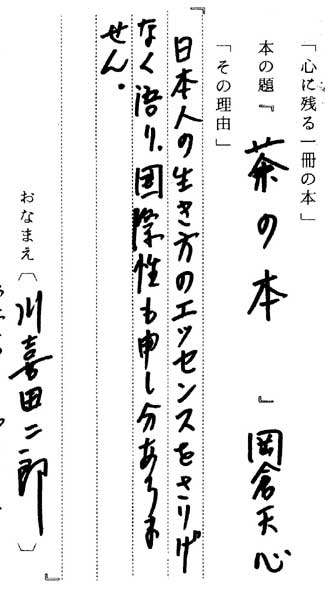 「心に残る一冊の本」
本の題『茶の本』岡倉天心
「その理由」
『日本人の生き方のエッセンスをさりげ
なく語り、国際性も申し分ありま
せん。
』
おなまえ〔川喜田二郎〕